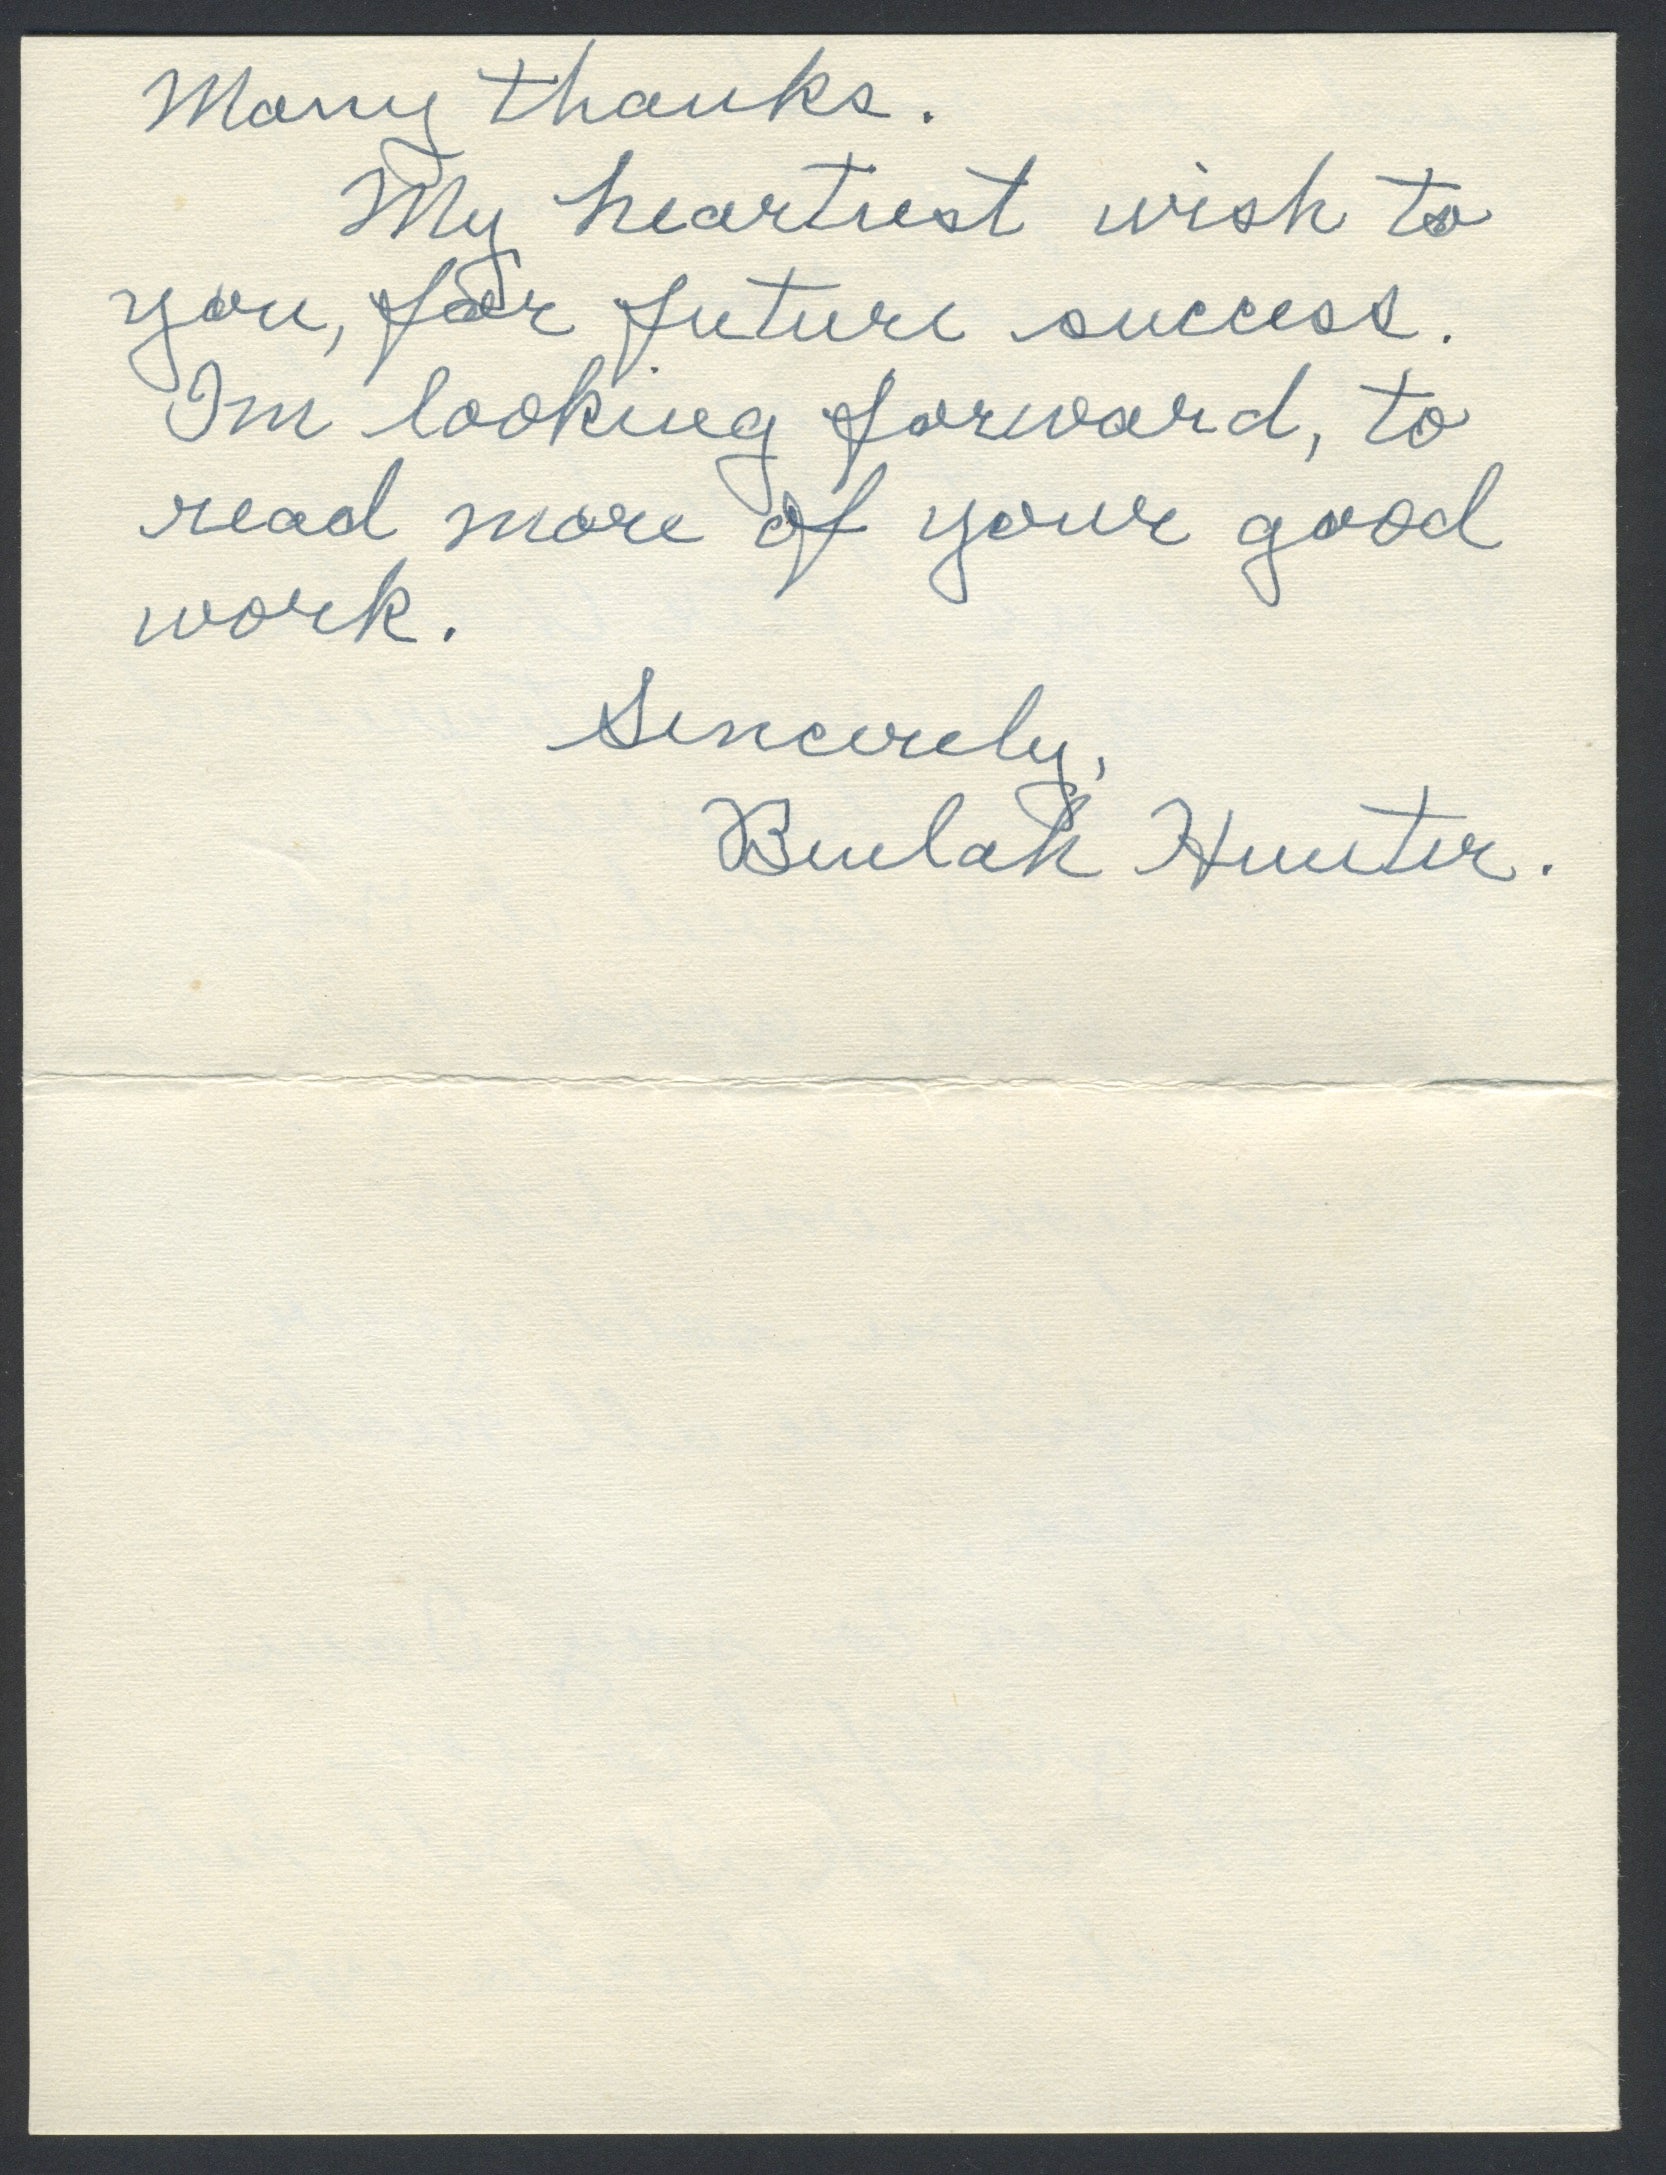 Many thanks.
My heartiest wish to
you, for future success.
Im looking forward, to
read more of your good
work.
Sincerely,
Beulah Hunter.